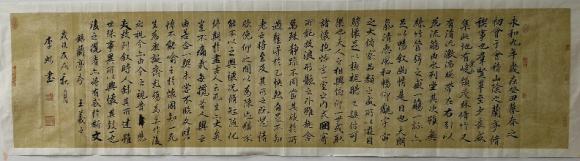 永和九年歲在癸丑暮春之
初會于會稽山陰之蘭亭脩
稧事也羣賢畢至少長咸
集此地有崇山峻領茂林脩竹又
有清流激湍暎帶左右引以
為流觴曲水列坐其次雖無
絲竹管絃之盛一觴一詠亦
足以暢敘幽情是日也天朗
氣清惠風和暢仰觀宇宙
之大俯察品類之盛所以遊目
騁懷足以極視聽之娛信可
樂也夫人之相與俯仰一世或取
諸懷抱悟言一室之內或因寄
所託放浪形骸之外雖趣舍
萬殊靜躁不同當其欣於所
遇暫得於己快然自足不知
老之將至及其所之既惓情
隨事遷感慨係之矣向之所欣
俛仰之間以為陳迹猶不
能不以之興懷況脩短隨化
終期於盡古人云死生亦大矣
豈不痛哉每攬昔人興感之
由若合一契未嘗不臨文嗟
悼不能喻之於懷固知一死
生為虛誕齊彭殤為妄作後
之視今亦由今之視昔悲夫
故列敘時人錄其所述雖
世殊事異所以興懷其致一也
後之覽者亦將有感於斯文
錄蘭亭序 王羲之
戊戌
李 書